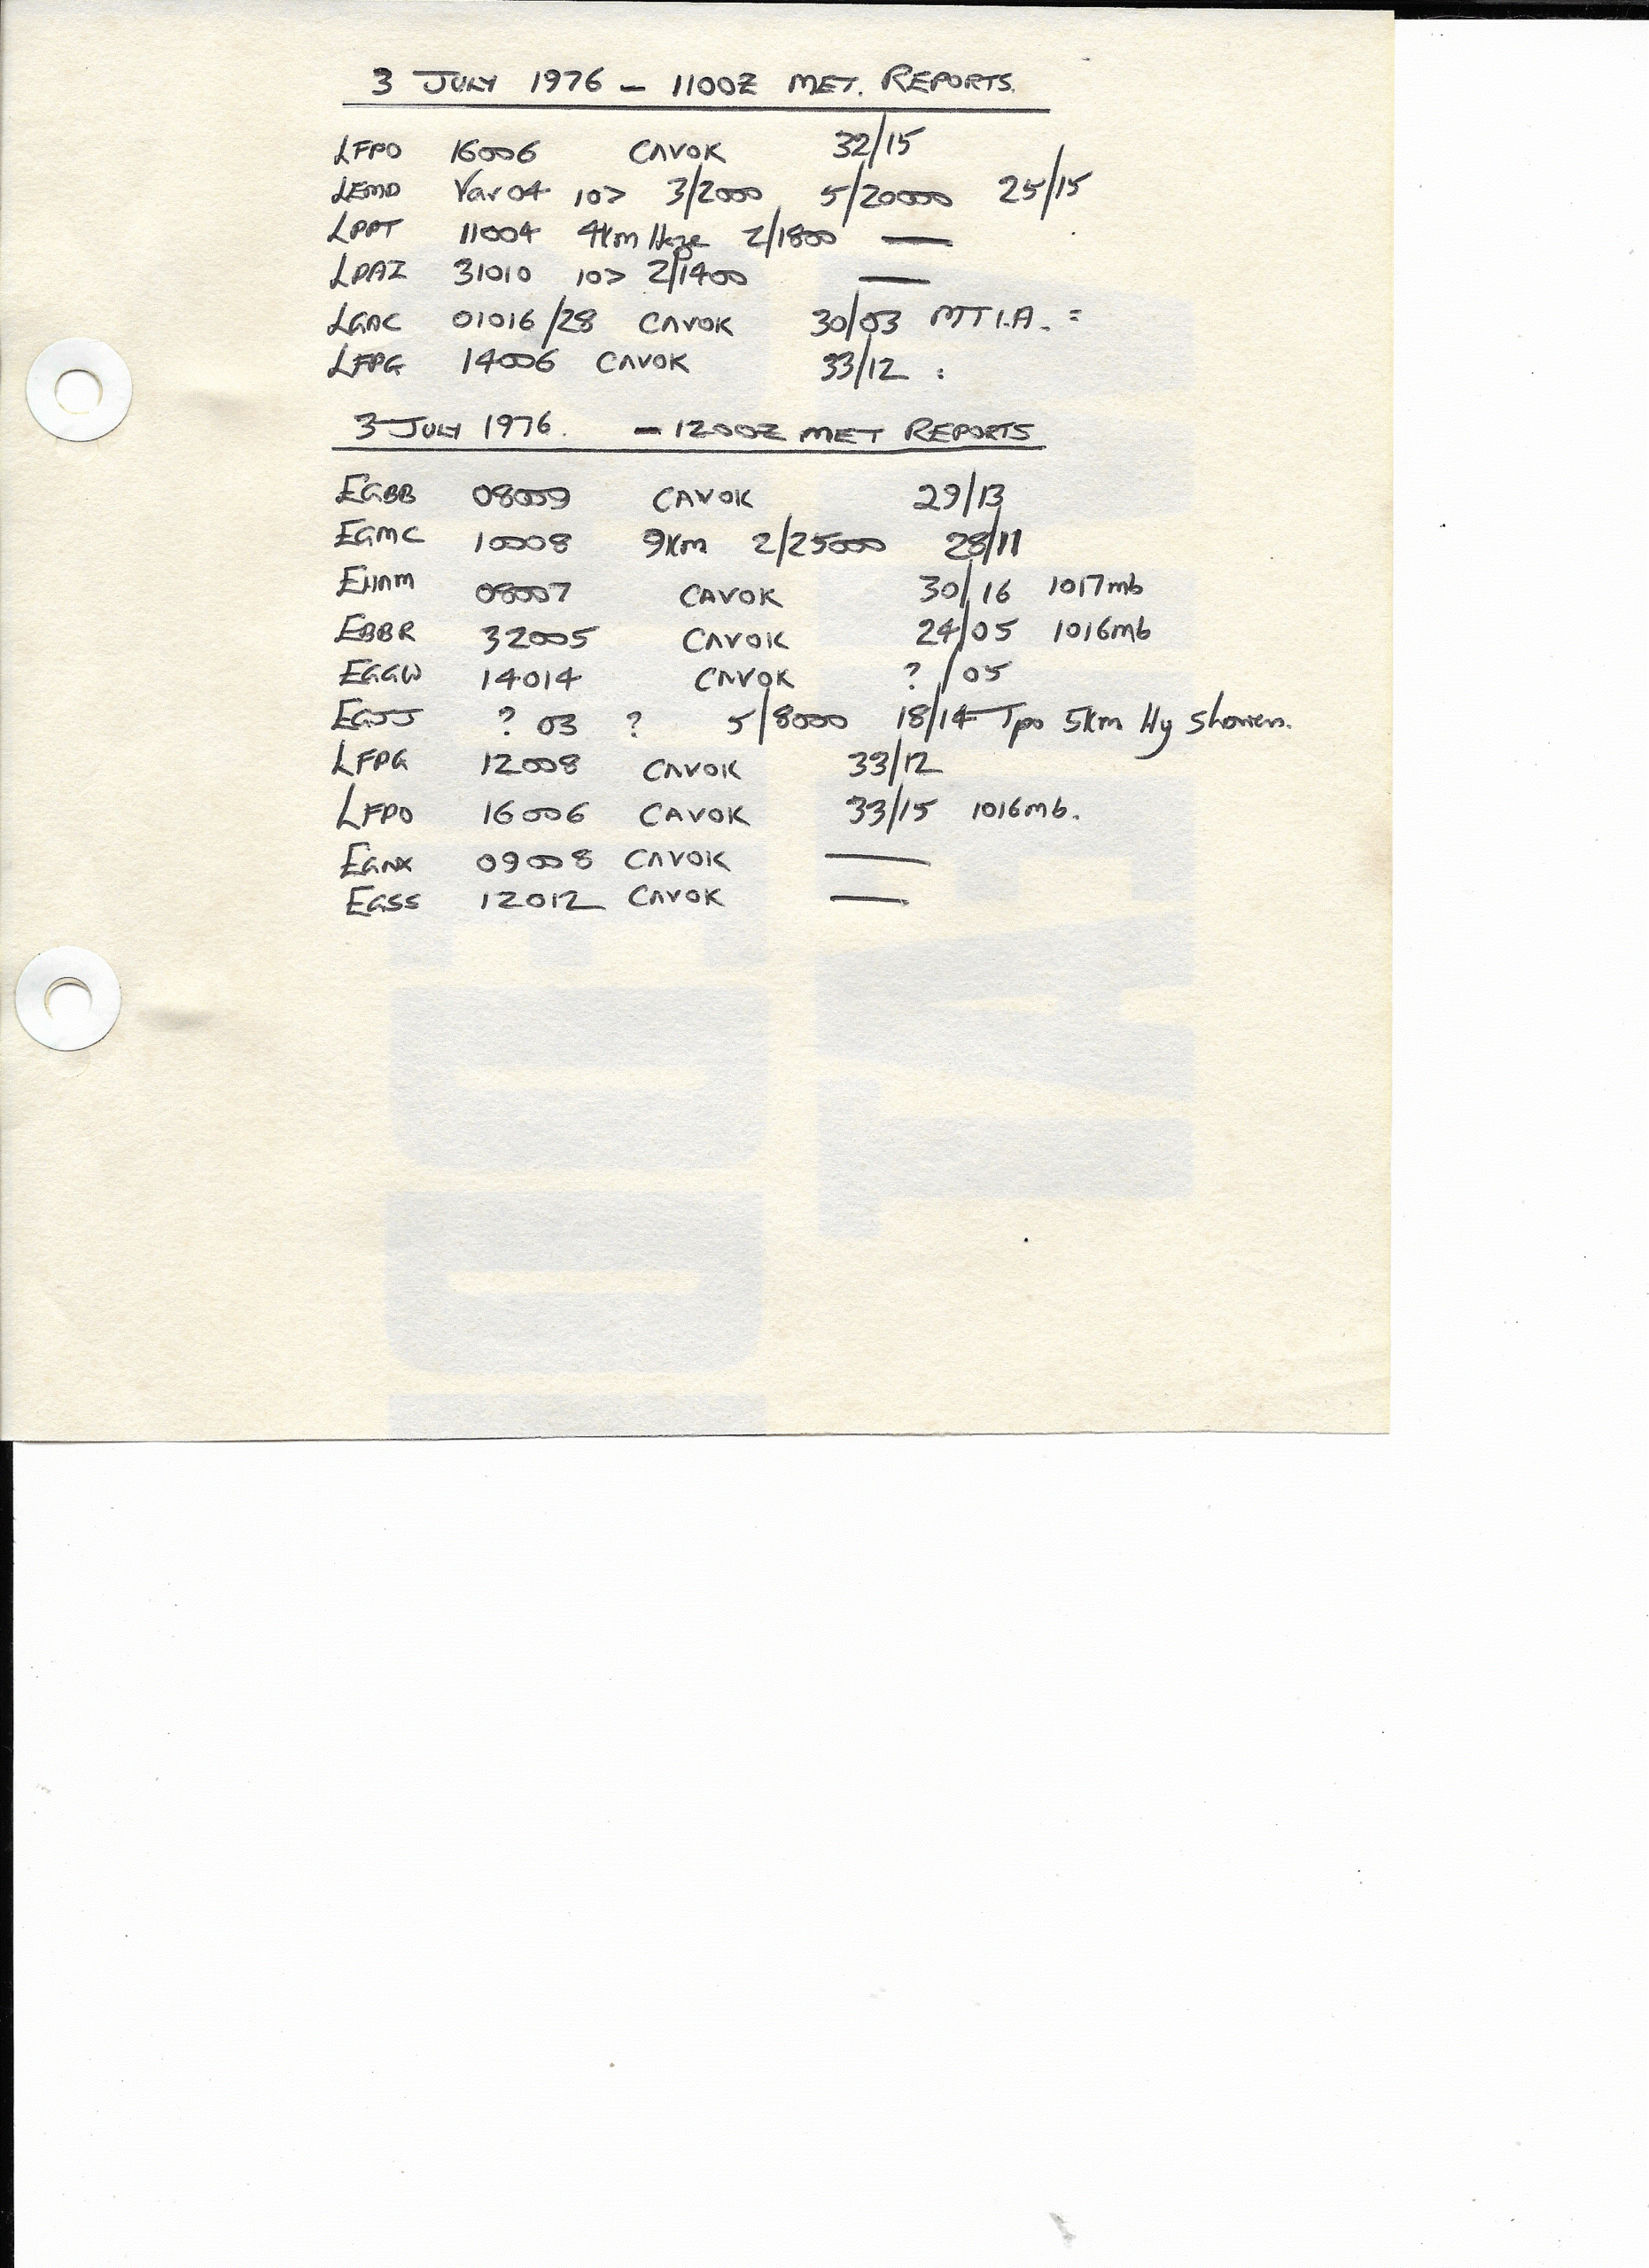 3 JULY 1976 - 1100Z MET. REPORTS.
LFPO 16006 CAVOK 32/15
LEMD Var 04 10> 3/2000 5/20000 25/15
LPPT 11004 4km Haze 2/1800 —
LPAZ 31010 10> 2/1400 —
LGAC 01016/28 CAVOK 30/03 MTI.A. =
LFPG 14006 CAVOK 33/12 :
3 JULY 1976. - 1200Z MET REPORTS
EGBB 08009 CAVOK 29/13
EGMC 10008 9km 2/25000 28/11
EHAM 08007 CAVOK 30/16 1017mb
EBBR 32005 CAVOK 24/05 1016mb
EGGW 14014 CAVOK ? /05
EGJJ ? 03 ? 5/8000 18/14 Tpo 5km Hy Showers.
LFPG 12008 CAVOK 33/12
LFPO 16006 CAVOK 33/15 1016mb.
EGNX 09008 CAVOK —
EGSS 12012 CAVOK —